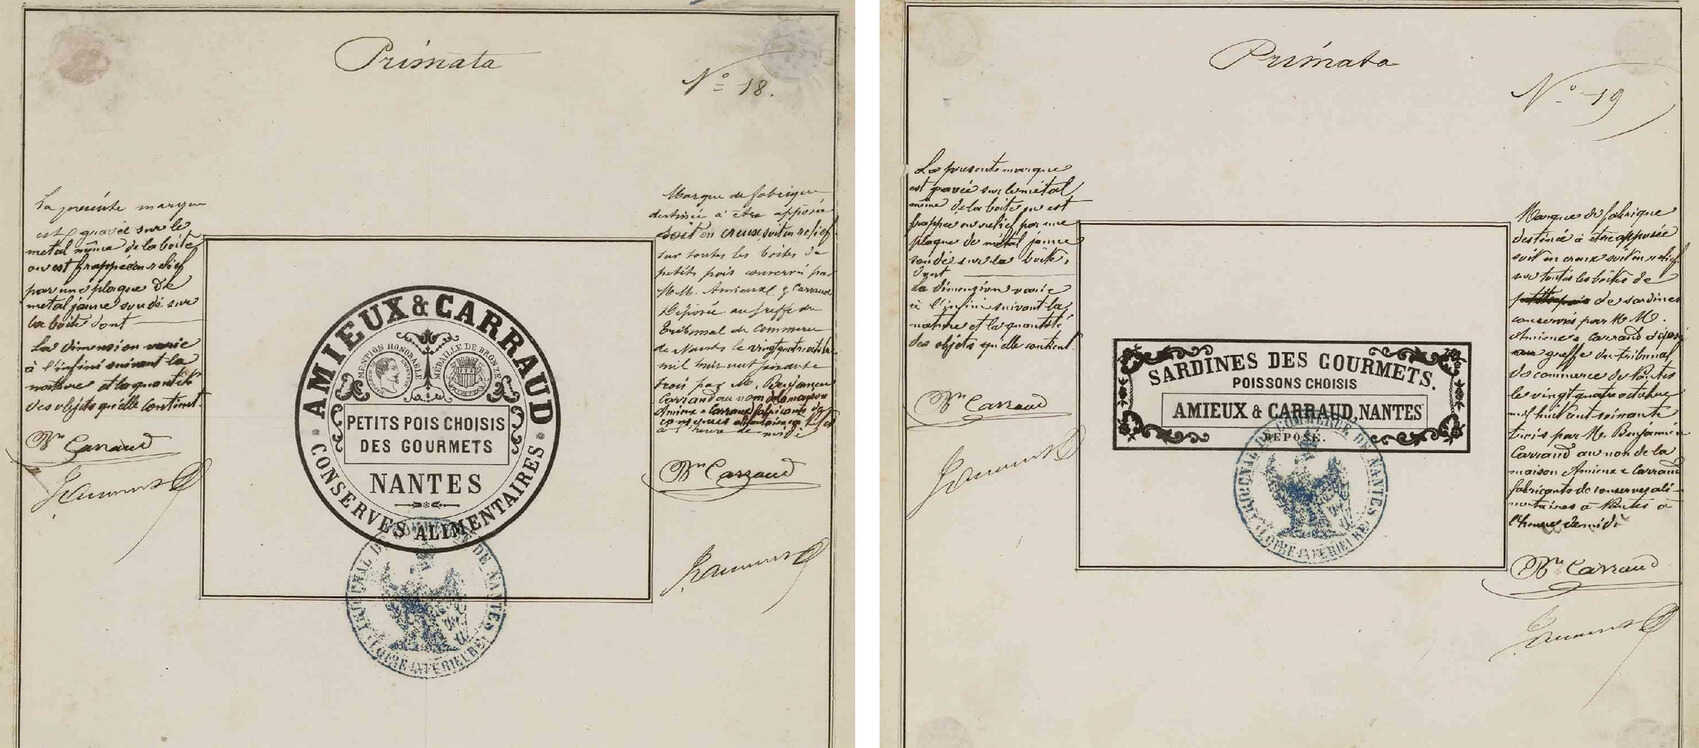 Primata
N° 18.
La présente marque
est gravée sur le
métal même de la boîte
ou est frappée en relief
par une plaque de
métal jaune soudé sur
la boîte dont
La dimension varie
à l'infini suivant la
nature et la quantité
des objets qu'elle contient.
Bn Carraud
Marque de fabrique
destinée à être apposée
soit en creux, soit en relief
sur toutes les boîtes de
petits pois conservés par
M.M. Amieux & Carraud
Déposée au greffe du
Tribunal de Commerce
de Nantes le vingt quatre octobre
mil huit cent soixante
trois par M. Benjamin
Carraud au nom de la maison
Amieux & Carraud fabricants de
conserves alimentaires
Bn Carraud
AMIEUX & CARRAUD
MENTION HONORABLE
MÉDAILLE DE BRONZE
PETITS POIS CHOISIS
DES GOURMETS
NANTES
CONSERVES ALIMENTAIRES
TRIBUNAL DE COMMERCE DE NANTES
(LOIRE-INFÉRIEURE)
Primata
N° 19
La présente marque
est gravée sur le métal
même de la boîte ou est
frappée en relief par une
plaque de métal jaune
soudé sur la boîte,
dont
La dimension varie
à l'infini suivant la
nature et la quantité
des objets qu'elle contient
Bn Carraud
SARDINES DES GOURMETS.
POISSONS CHOISIS
AMIEUX & CARRAUD, NANTES
DÉPOSÉ.
TRIBUNAL DE COMMERCE DE NANTES
(LOIRE-INFÉRIEURE)
Marque de fabrique
destinée à être apposée
soit en creux soit en relief
sur toutes les boîtes de
petits pois de sardines
conservées par M.M.
Amieux & Carraud déposée
au greffe du tribunal
de commerce de Nantes
le vingt quatre octobre
mil huit cent soixante
trois par M. Benjamin
Carraud au nom de la
maison Amieux & Carraud
fabricants de conserves ali-
mentaires à Nantes à
Bn Carraud